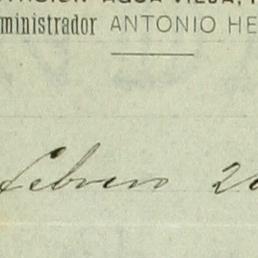 AGUA VIEJA,
ministrador ANTONIO HE
Febrero 2